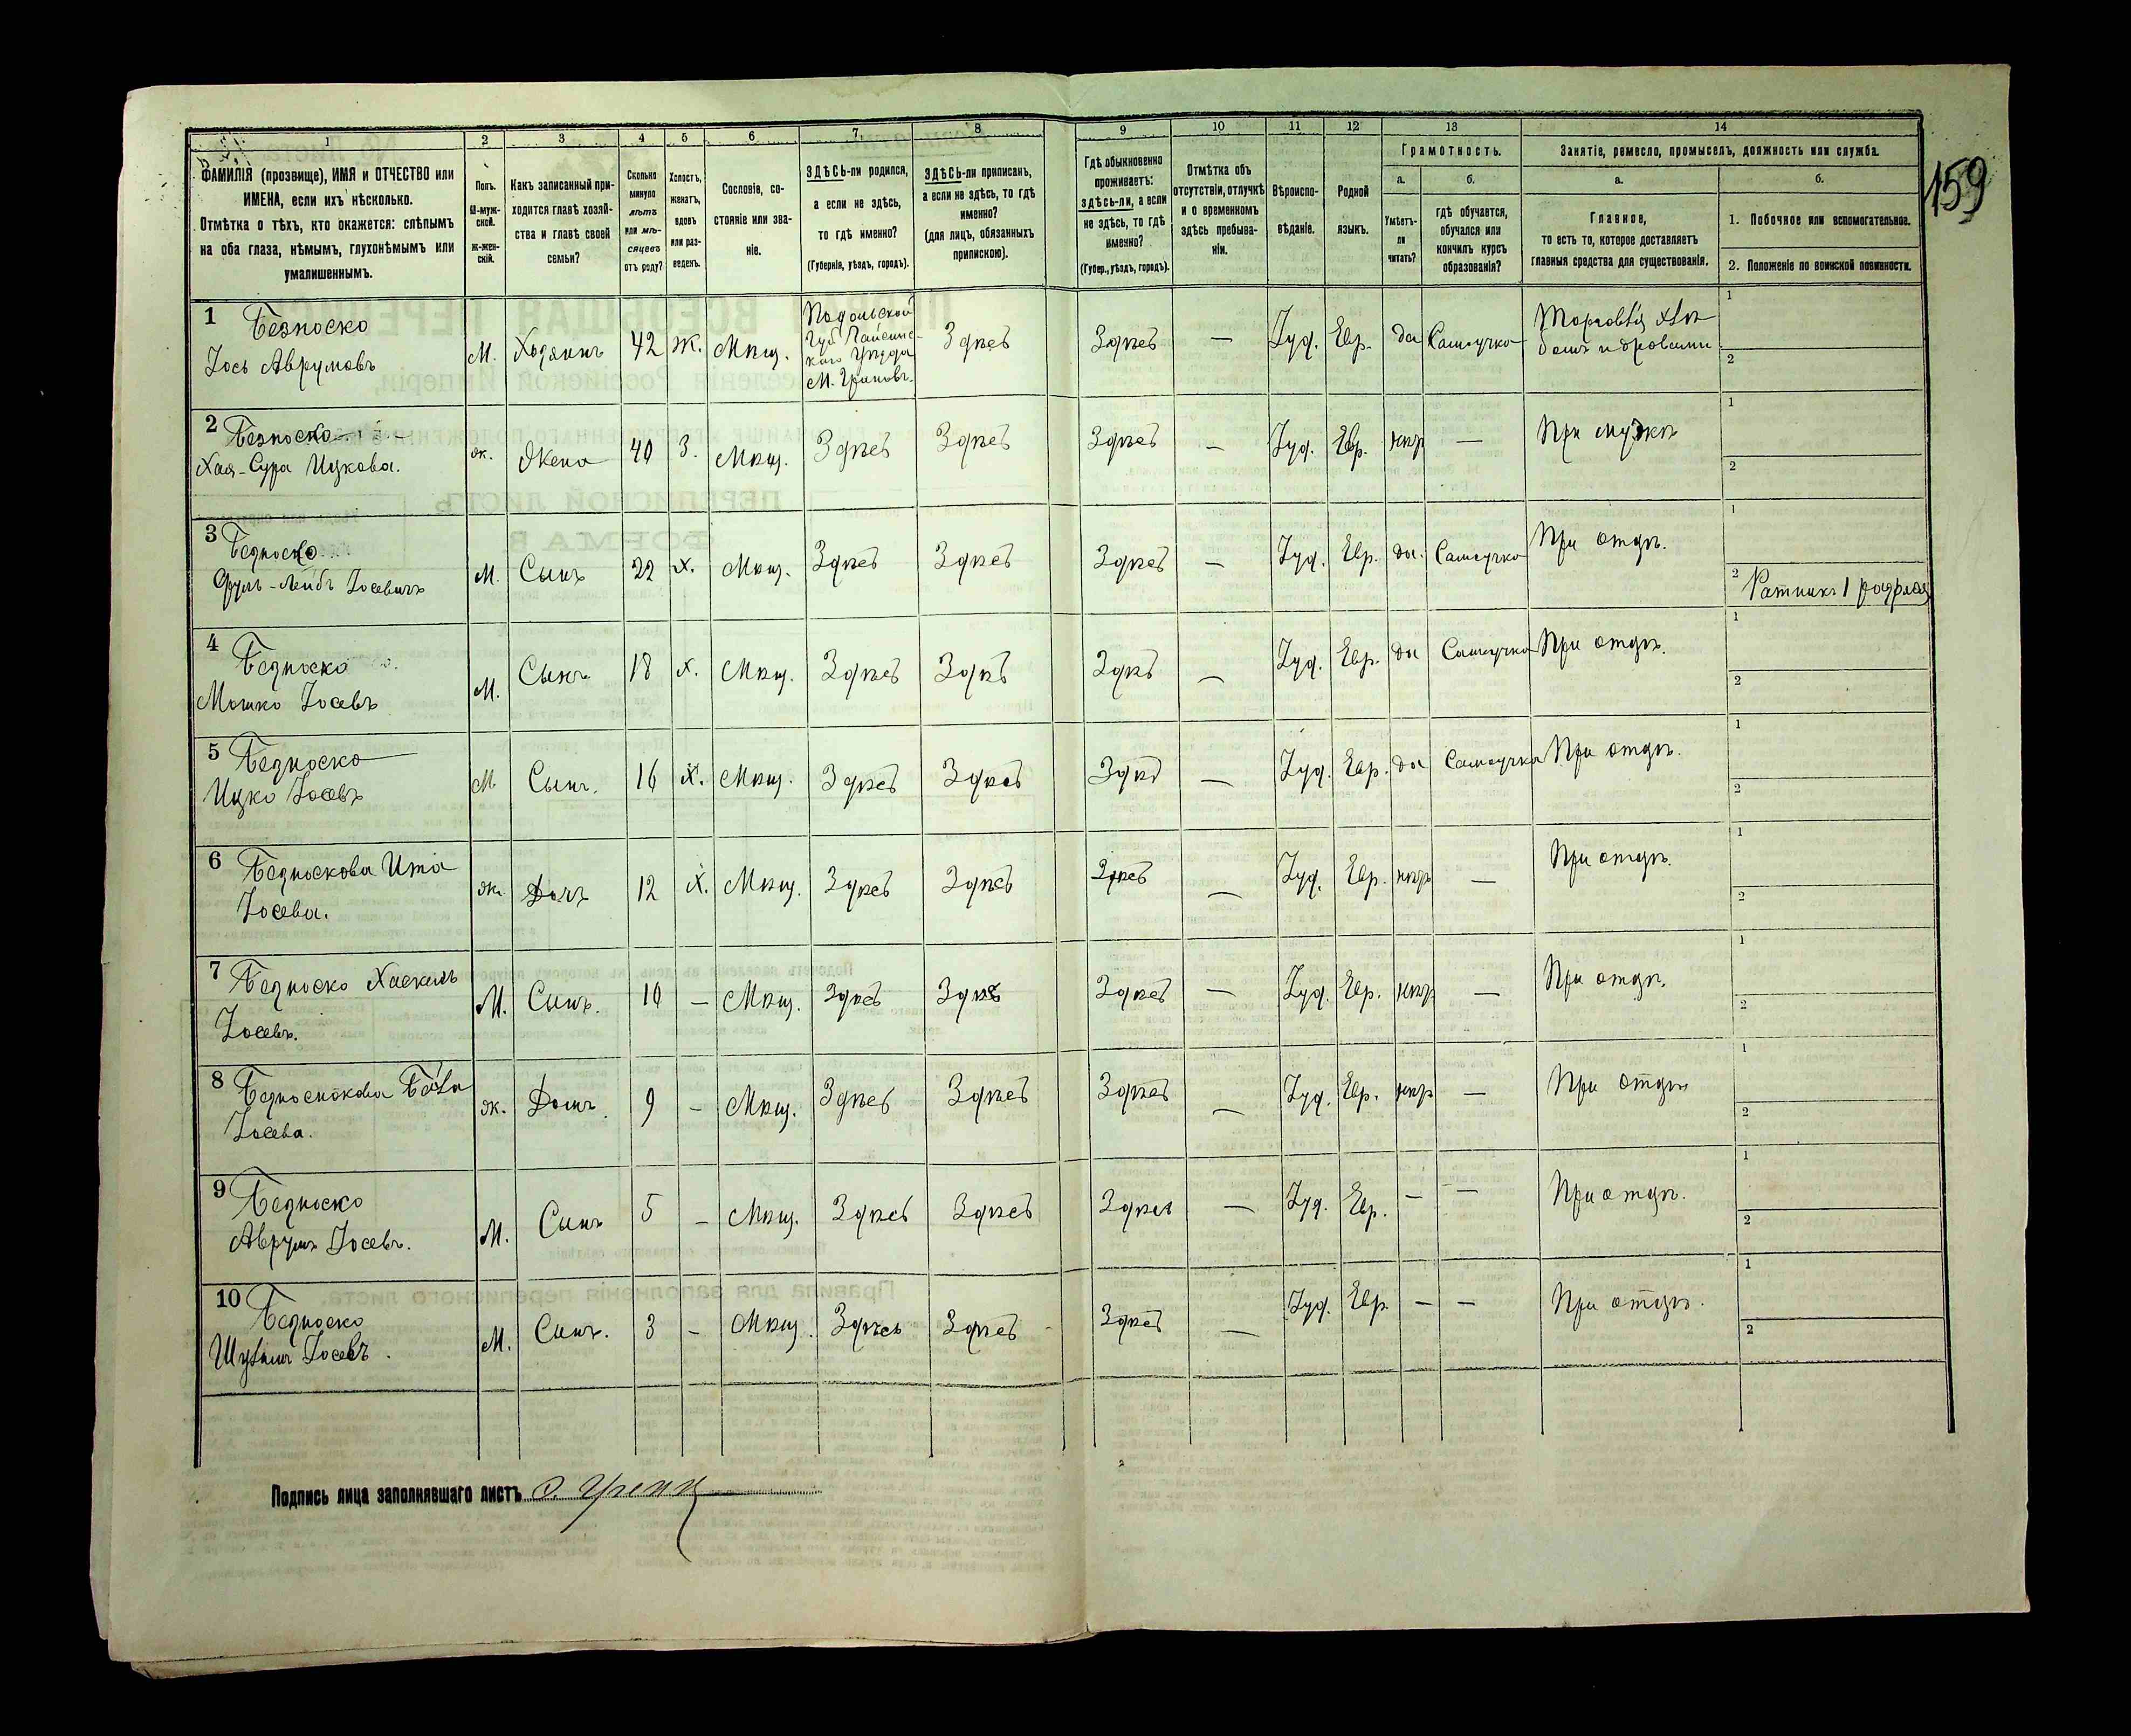 1
ФАМИЛІЯ (прозвище), ИМЯ и ОТЧЕСТВО или
ИМЕНА, если ихъ нѣсколько.
Отмѣтка о тѣхъ, кто окажется: слѣпымъ
на оба глаза, нѣмымъ, глухонѣмымъ или
умалишеннымъ.
2
Полъ.
М-муж-
ской.
Ж-жен-
скій.
3
Какъ записанный при-
ходится главѣ хозяй-
ства и главѣ своей
семьи?
4
Сколько
минуло
лѣтъ
или мѣ-
сяцевъ
отъ роду?
5
Холостъ,
женатъ,
вдовъ
или раз-
веденъ.
6
Сословіе, со-
стояніе или зва-
ніе.
7
ЗДѢСЬ-ли родился,
а если не здѣсь,
то гдѣ именно?
(Губернія, уѣздъ, городъ).
8
ЗДѢСЬ-ли приписанъ,
а если не здѣсь, то гдѣ
именно?
(для лицъ, обязанныхъ
припискою).
9
Гдѣ обыкновенно
проживаетъ:
здѣсь-ли, а если
не здѣсь, то гдѣ
именно?
(Губер., уѣздъ, городъ).
10
Отмѣтка объ
отсутствіи, отлучкѣ
и о временномъ
здѣсь пребыва-
ніи.
11
Вѣроиспо-
вѣданіе.
12
Родной
языкъ.
13
Грамотность.
а.
Умѣетъ-
ли
читать?
б.
гдѣ обучается,
обучался или
кончилъ курсъ
образованія?
14
Занятіе, ремесло, промыселъ, должность или служба.
а.
Главное,
то есть то, которое доставляетъ
главныя средства для существованія.
б.
1. Побочное или вспомогательное.
2. Положеніе по воинской повинности.
159
1 Безноско
Іось Аврумовъ
М. Хозяинъ 42 Ж. Мѣщ.
Подольской
Губ Гайсинс-
каго Уѣзда
М.
Здѣсь Здѣсь — Іуд. Евр. да Самоучка
Торговля хлѣ-
бомъ и дровами
1
2
2 Безноско
Хая-Сура Ицкова.
ж. Жена 40 З. Мѣщ. Здѣсь Здѣсь Здѣсь — Іуд. Евр. нѣт — При мужѣ
1
2
3 Безноско
Сруль-Лейбъ Іосевичъ
М. Сынъ 22 х. Мѣщ. Здѣсь Здѣсь Здѣсь — Іуд. Евр. да. Самоучка При отцѣ.
1
2 Ратникъ 1 разряда
4 Безноско
Мошко Іосевъ
М. Сынъ 18 х. Мѣщ. Здѣсь Здѣсь Здѣсь — Іуд. Евр. да Самоучка При отцѣ.
1
2
5 Безноско
Ицко Іосевъ
М Сынъ. 16 х. Мѣщ. Здѣсь Здѣсь Здѣсь — Іуд. Евр. да Самоучка При отцѣ.
1
2
6 Безноскова Ита
Іосева.
ж. Дочь 12 Х. Мѣщ. Здѣсь Здѣсь Здѣсь — Іуд. Евр. нѣт — При отцѣ.
1
2
7 Безноско Хаскель
Іосевъ.
М. Сынъ. 10 — Мѣщ. Здѣсь Здѣсь Здѣсь — Іуд. Евр. нѣт — При отцѣ.
1
2
8 Безноскова
Іосева.
ж. Дочь. 9 — Мѣщ. Здѣсь Здѣсь Здѣсь — Іуд. Евр. нѣт — При отцѣ
1
2
9 Безноско
Аврумъ Іосевъ.
М. Сынъ 5 — Мѣщ. Здѣсь Здѣсь Здѣсь — Іуд. Евр. — — При отцѣ.
1
2
10 Безноско
Іосевъ.
М. Сынъ. 3 — Мѣщ. Здѣсь Здѣсь Здѣсь — Іуд. Евр. — — При отцѣ.
1
2
Подпись лица заполнявшаго листъ